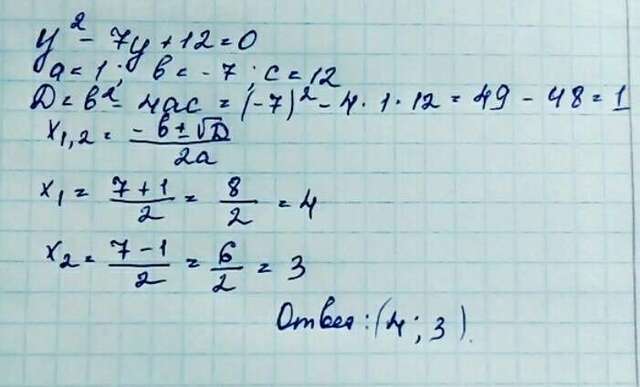 y² - 7y + 12 = 0
a = 1; b = -7; c = 12
D = b² - 4ac = (-7)² - 4 · 1 · 12 = 49 - 48 = 1
x₁,₂ = (-b ± √D)/(2a)
x₁ = (7 + 1)/2 = 8/2 = 4
x₂ = (7 - 1)/2 = 6/2 = 3
Ответ: (4; 3).